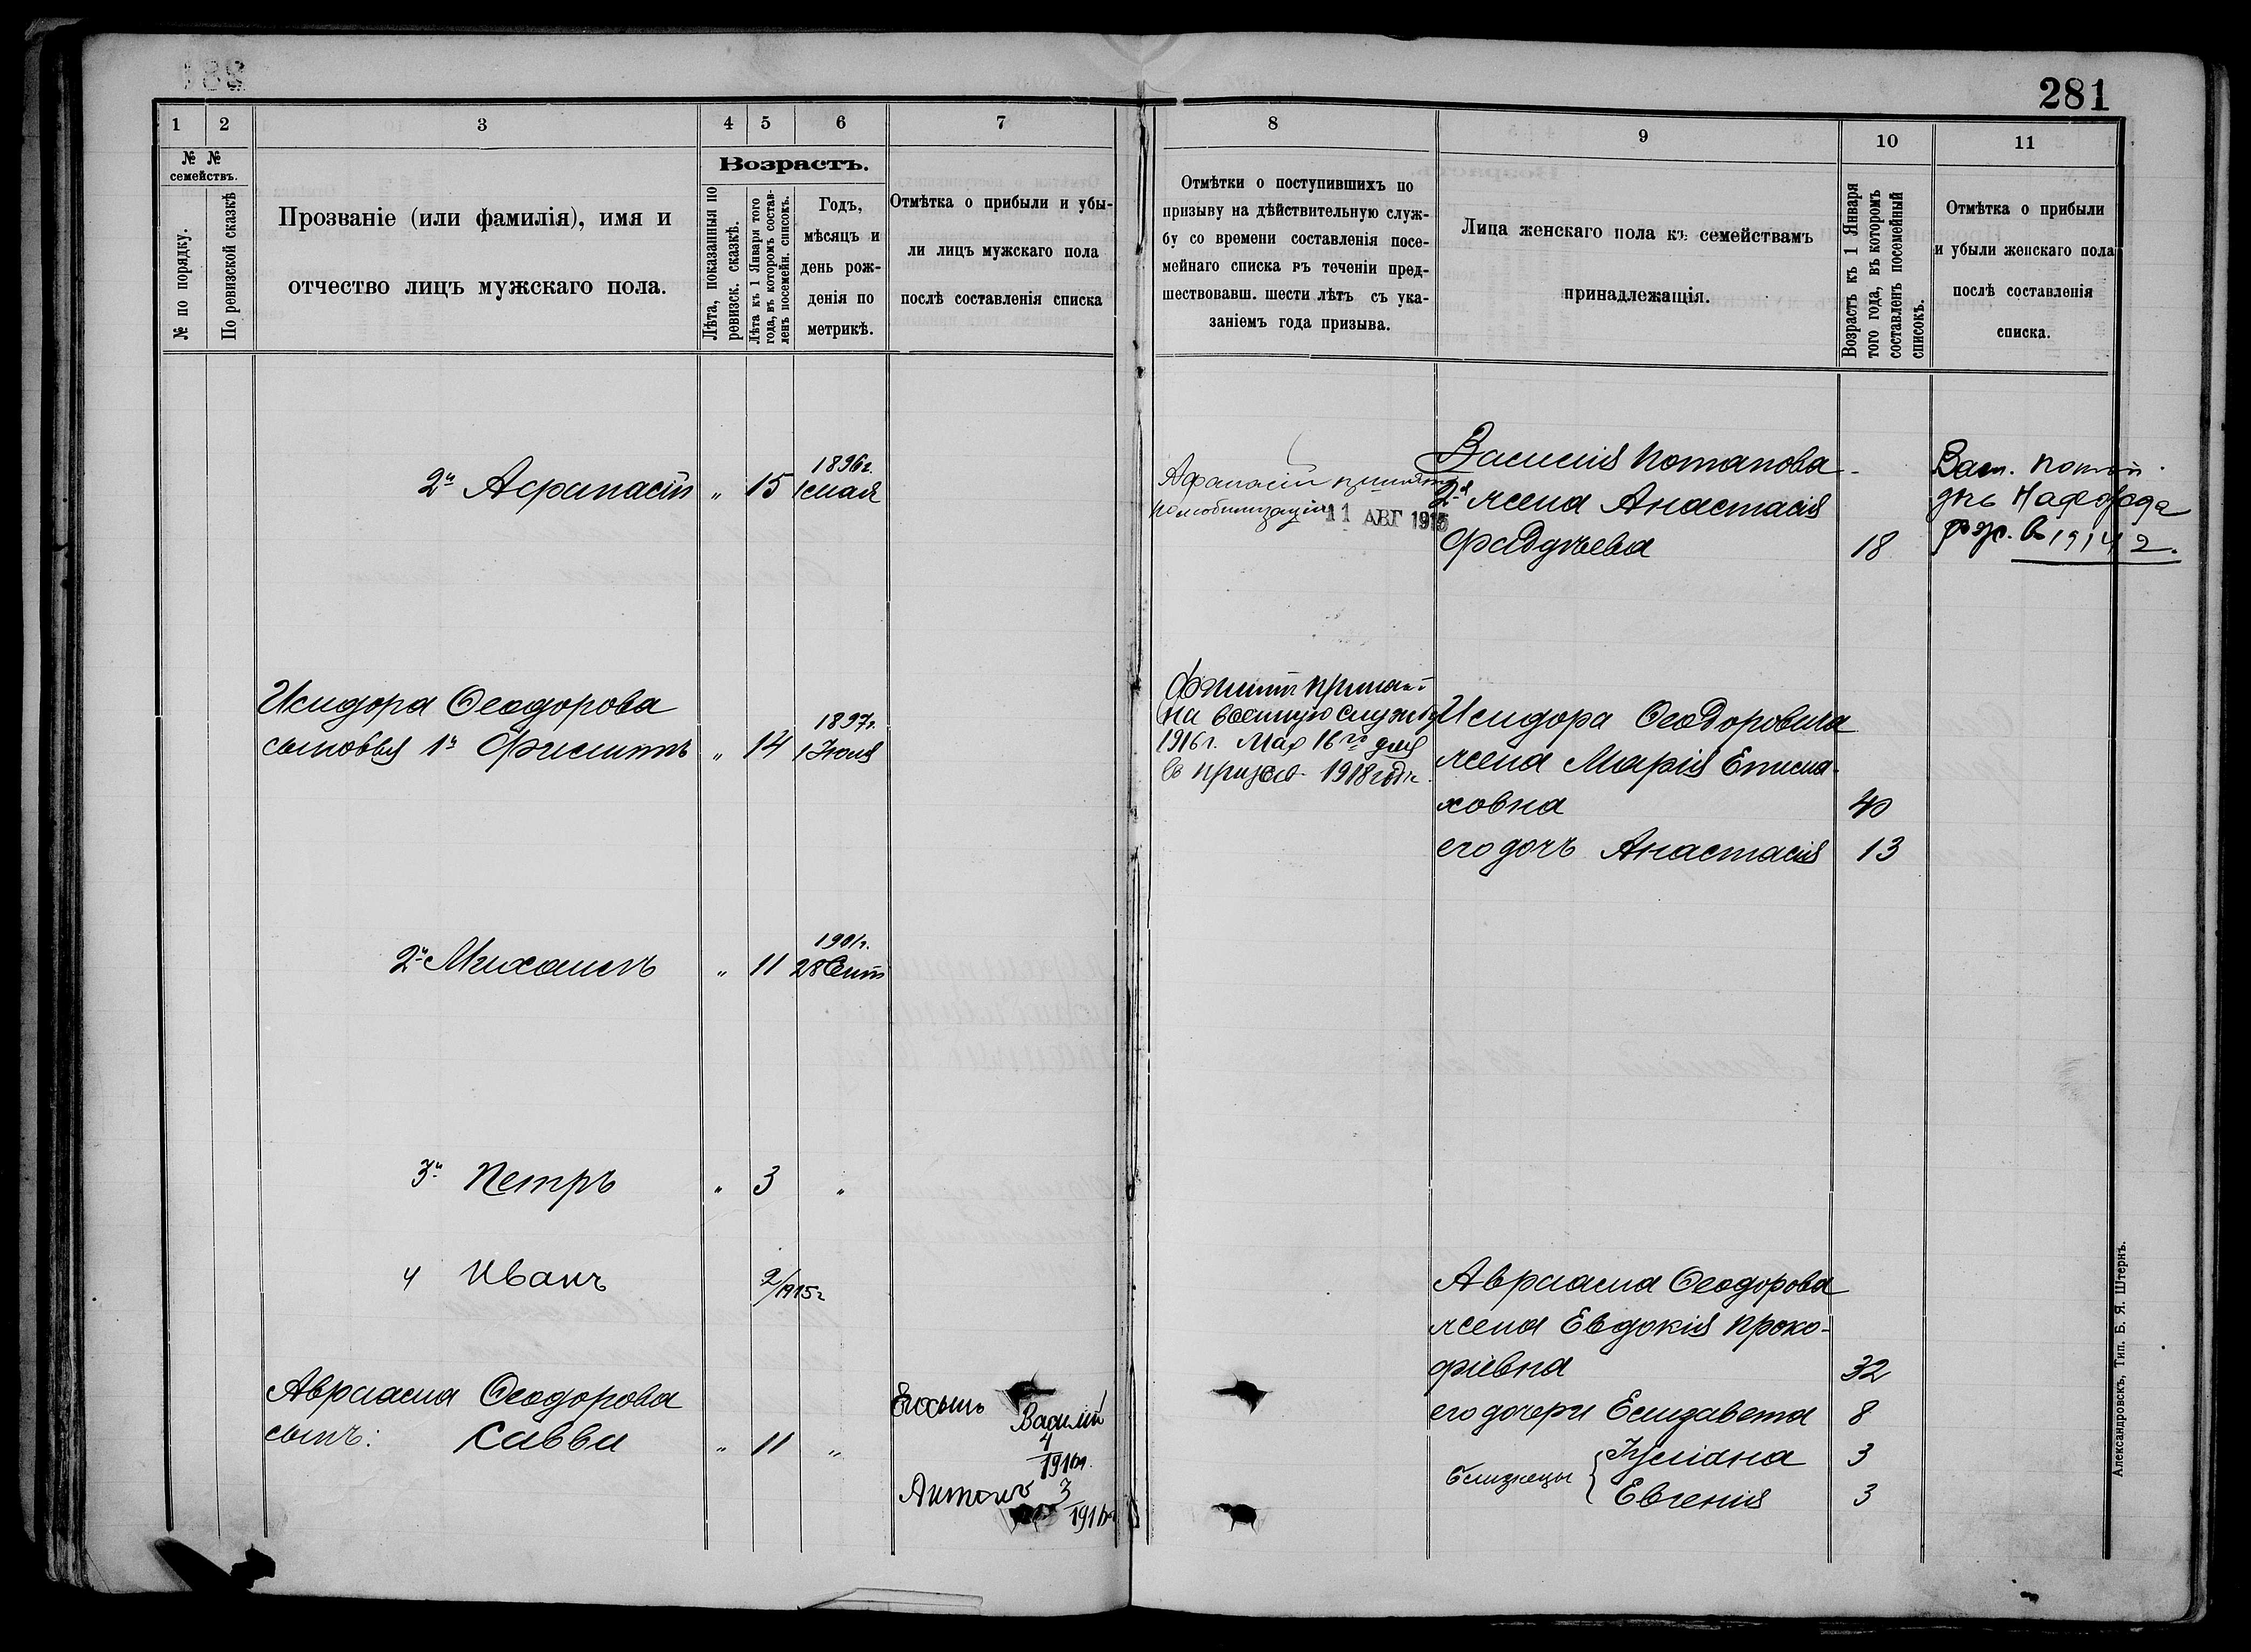 281
1
2
3
4
5
6
7
№ №
семействъ.
№ по порядку.
По ревизской сказкѣ
Прозваніе (или фамилія), имя и
отчество лицъ мужскаго пола.
Возрастъ.
Лѣта, показанныя по
ревизск. сказкѣ.
Лѣта къ 1 Января того
года, въ которомъ состав-
ленъ посемейн. списокъ.
Годъ,
мѣсяцъ и
день рож-
денія по
метрикѣ.
Отмѣтка о прибыли и убы-
ли лицъ мужскаго пола
послѣ составленія списка
2й Афанасій " 15 1896г. 1 мая
Исидора Ѳеодорова
сыновья 1й Филиппъ " 14 1897г. 1 Іюля
2й Михаилъ " 11 1901г. 28 Сент
3й Петръ " 3 "
4 Иванъ 2/1915г
Авраама Ѳеодорова
сынъ: Савва " 11 "
Василій
4
1916г.
Антонъ 3
1916г
8
9
10
11
Отмѣтки о поступившихъ по
призыву на дѣйствительную служ-
бу со времени составленія посе-
мейнаго списка въ теченіи пред-
шествовавш. шести лѣтъ съ ука-
заніемъ года призыва.
Лица женскаго пола къ семействамъ
принадлежащія.
Возрастъ къ 1 Января
того года, въ которомъ
составленъ посемейный
списокъ.
Отмѣтка о прибыли
и убыли женскаго пола
послѣ составленія
списка.
Афанасій принятъ
по мобилизаціи 11 АВГ 1915
Василія Потапова
2-я жена Анастасія
Фаддѣева 18
Вас. Потап.
дчь
рож. въ 1914 г.
Филиппъ принят
на военную службу
1916г. Мая 16го дня
въ призыв 1918 года
Исидора Ѳеодоровича
жена Марія Епима-
ховна 40
его дочь Анастасія 13
Авраама Ѳеодорова
жена Евдокія Проко-
фіевна 32
его дочери Елизавета 8
близнецы { Іуліана 3
Евгенія 3
Александровскъ, Тип. Б. Я. Штернъ.